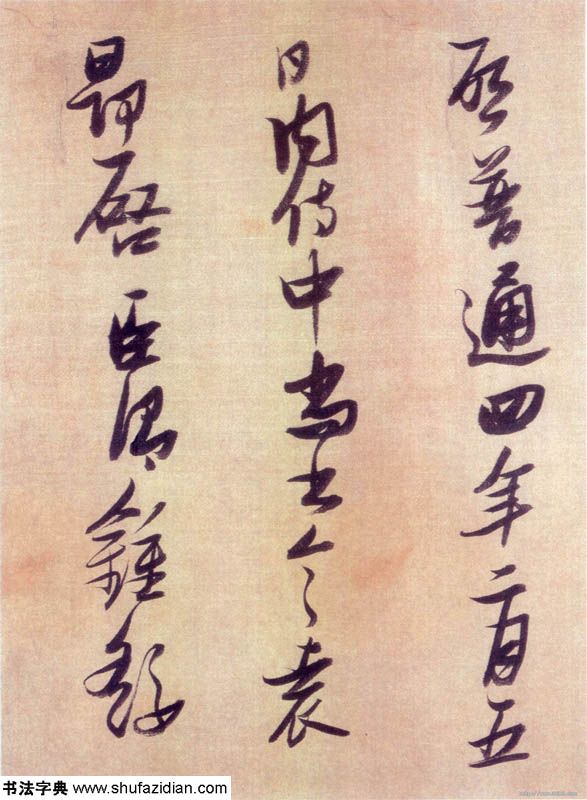 啓普通四年二月五
日内侍中尚書令袁
昂啓臣謂鍾繇
书法字典 www.shufazidian.com